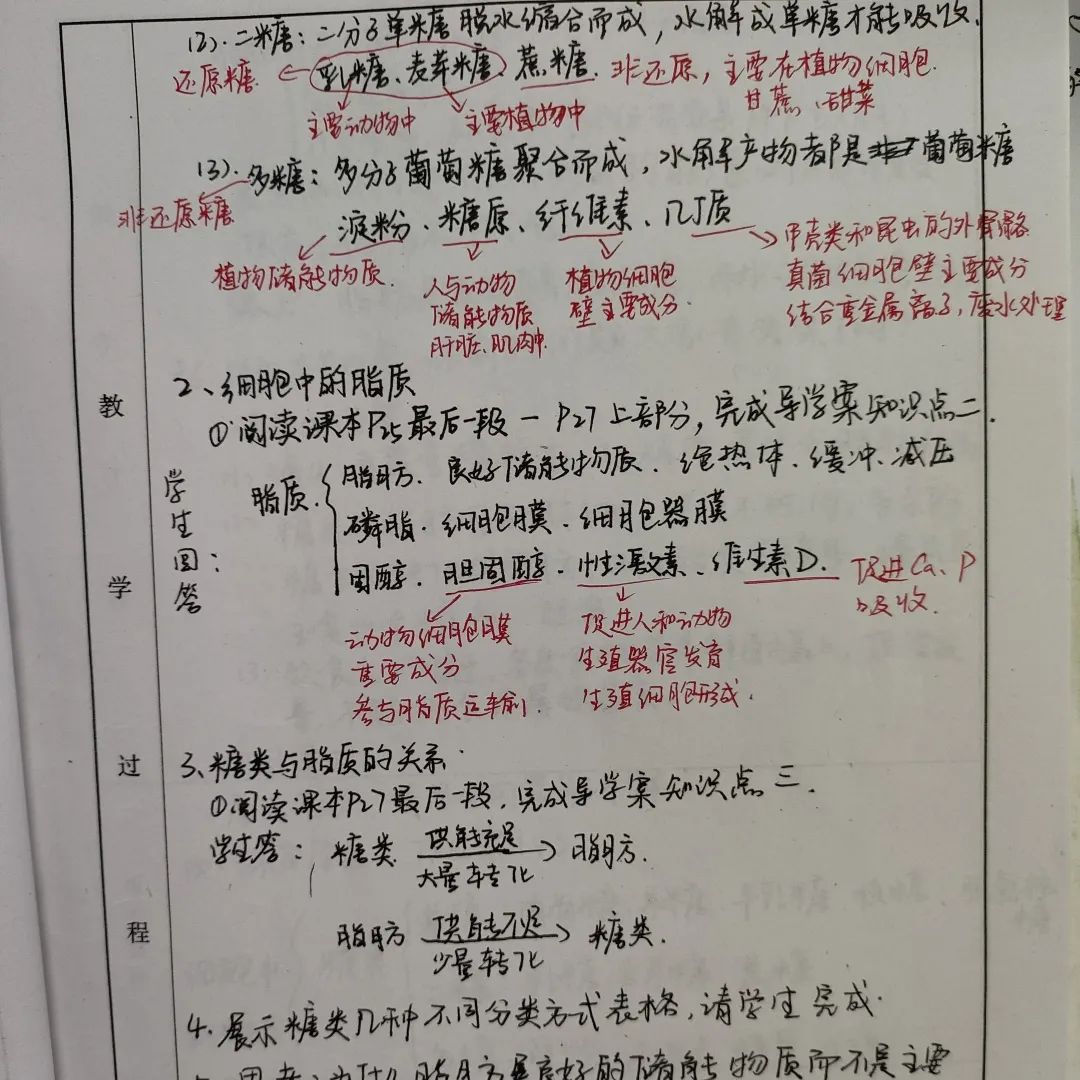 (2). 二糖：二分子单糖脱水缩合而成，水解成单糖才能吸收.
还原糖. ← 乳糖、麦芽糖、蔗糖. 非还原，主要在植物细胞.
甘蔗、甜菜
主要动物中 主要植物中
(3). 多糖：多分子葡萄糖聚合而成，水解产物都是葡萄糖
非还原糖
淀粉、糖原、纤维素、几丁质
植物储能物质.
人与动物
储能物质
肝脏、肌肉中.
植物细胞
壁主要成分.
甲壳类和昆虫的外骨骼
真菌细胞壁主要成分
结合重金属离子，废水处理
2、细胞中的脂质
①阅读课本P25最后一段－P27上部分，完成导学案知识点二.
学生回答：
脂质. { 脂肪. 良好储能物质、绝热体、缓冲、减压
磷脂. 细胞膜、细胞器膜
固醇. 胆固醇、性激素、维生素D. 促进Ca、P
吸收.
动物细胞膜
重要成分
参与脂质运输.
促进人和动物
生殖器官发育
生殖细胞形成.
3、糖类与脂质的关系.
①阅读课本P27最后一段，完成导学案知识点三.
学生答：糖类 供能充足 → 脂肪.
大量转化
脂肪 供能不足 → 糖类.
少量转化
4. 展示糖类几种不同分类方式表格，请学生完成.
思考：为什么脂肪是良好的储能物质而不是主要
教
学
过
程